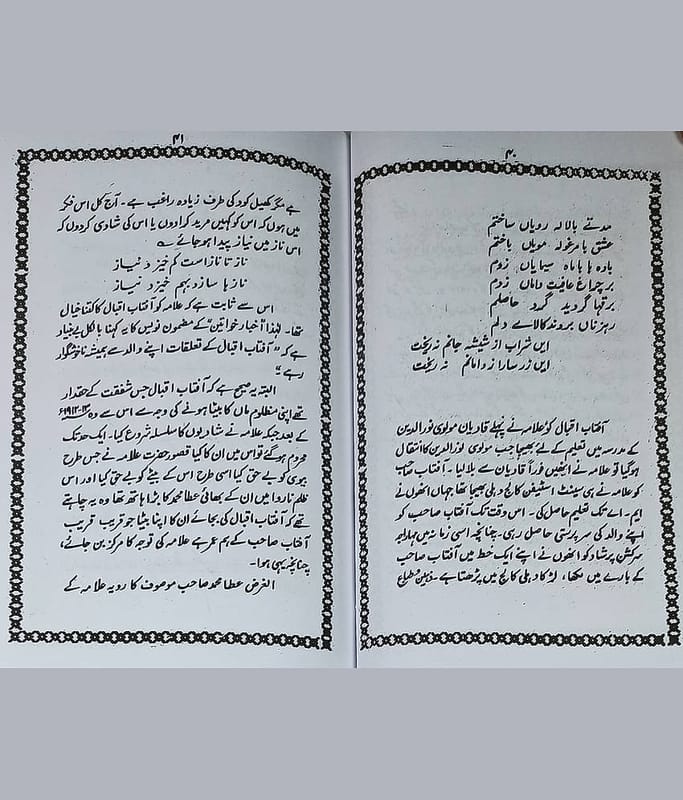 ۴۰
مدتے بالالہ رویاں ساختم
عشق بامرغولہ مویاں باختم
بادہ ہا باماہ سیمایاں زدم
برچراغِ عافیت داماں زدم
برقہا گردید گردِ حاصلم
رہزناں بردند کالائے دلم
ایں شراب از شیشۂ جانم نہ ریخت
ایں زر سارا ز دامانم نہ ریخت
آفتاب اقبال کو علامہ نے پہلے قادیان مولوی نورالدین
کے مدرسہ میں تعلیم کے لئے بھیجا جب مولوی نورالدین کا انتقال
ہوگیا تو علامہ نے انھیں فوراً قادیان سے بلا لیا۔ آفتاب صاحب
کو علامہ نے ہی سینٹ اسٹیفن کالج دہلی بھیجا تھا جہاں انھوں نے
ایم۔ اے تک تعلیم حاصل کی۔ اس وقت تک آفتاب صاحب کو
اپنے والد کی سرپرستی حاصل رہی۔ چنانچہ اسی زمانہ میں مہاراجہ
سرکشن پرشاد کو انھوں نے اپنے ایک خط میں آفتاب صاحب
کے بارے میں لکھا، لڑکا دہلی کالج میں پڑھتا ہے۔ ذہین و طباع
۴۱
ہے مگر کھیل کود کی طرف زیادہ راغب ہے۔ آج کل اس فکر
میں ہوں کہ اس کو کہیں مرید کرادوں یا اس کی شادی کردوں کہ
اس ناز میں نیاز پیدا ہو جائے
ناز تا ناز است کم خیزد نیاز
ناز ہا سازد بہم خیزد نیاز
اس سے ثابت ہے کہ علامہ کو آفتاب اقبال کا کتنا خیال
تھا۔ لہٰذا "اخبار خواتین" کے مضمون نویس کا یہ کہنا بالکل بے بنیاد
ہے کہ "آفتاب اقبال کے تعلقات اپنے والد سے ہمیشہ ناخوشگوار
رہے"
البتہ یہ صحیح ہے کہ آفتاب اقبال جس شفقت کے حقدار
تھے اپنی مظلوم ماں کا بیٹا ہونے کی وجہ سے اس سے وہ ۱۳-۱۹۱۲ء
کے بعد جبکہ علامہ نے شادیوں کا سلسلہ شروع کیا۔ ایک حد تک
محروم ہوگئے تو اس میں ان کا کیا قصور حضرت علامہ نے جس طرح
بیوی کو بے حق کیا اسی طرح اس کے بیٹے کو بے حق کیا اور اس
ظلم ناروا میں ان کے بھائی عطا محمد کا بڑا ہاتھ تھا وہ یہ چاہتے
تھے کہ آفتاب اقبال کی بجائے ان کا اپنا بیٹا جو قریب قریب
آفتاب صاحب کے ہم عمر ہے علامہ کی توجہ کا مرکز بن جائے،
چنانچہ یہی ہوا۔
الغرض عطا محمد صاحب موصوف کا رویہ علامہ کے